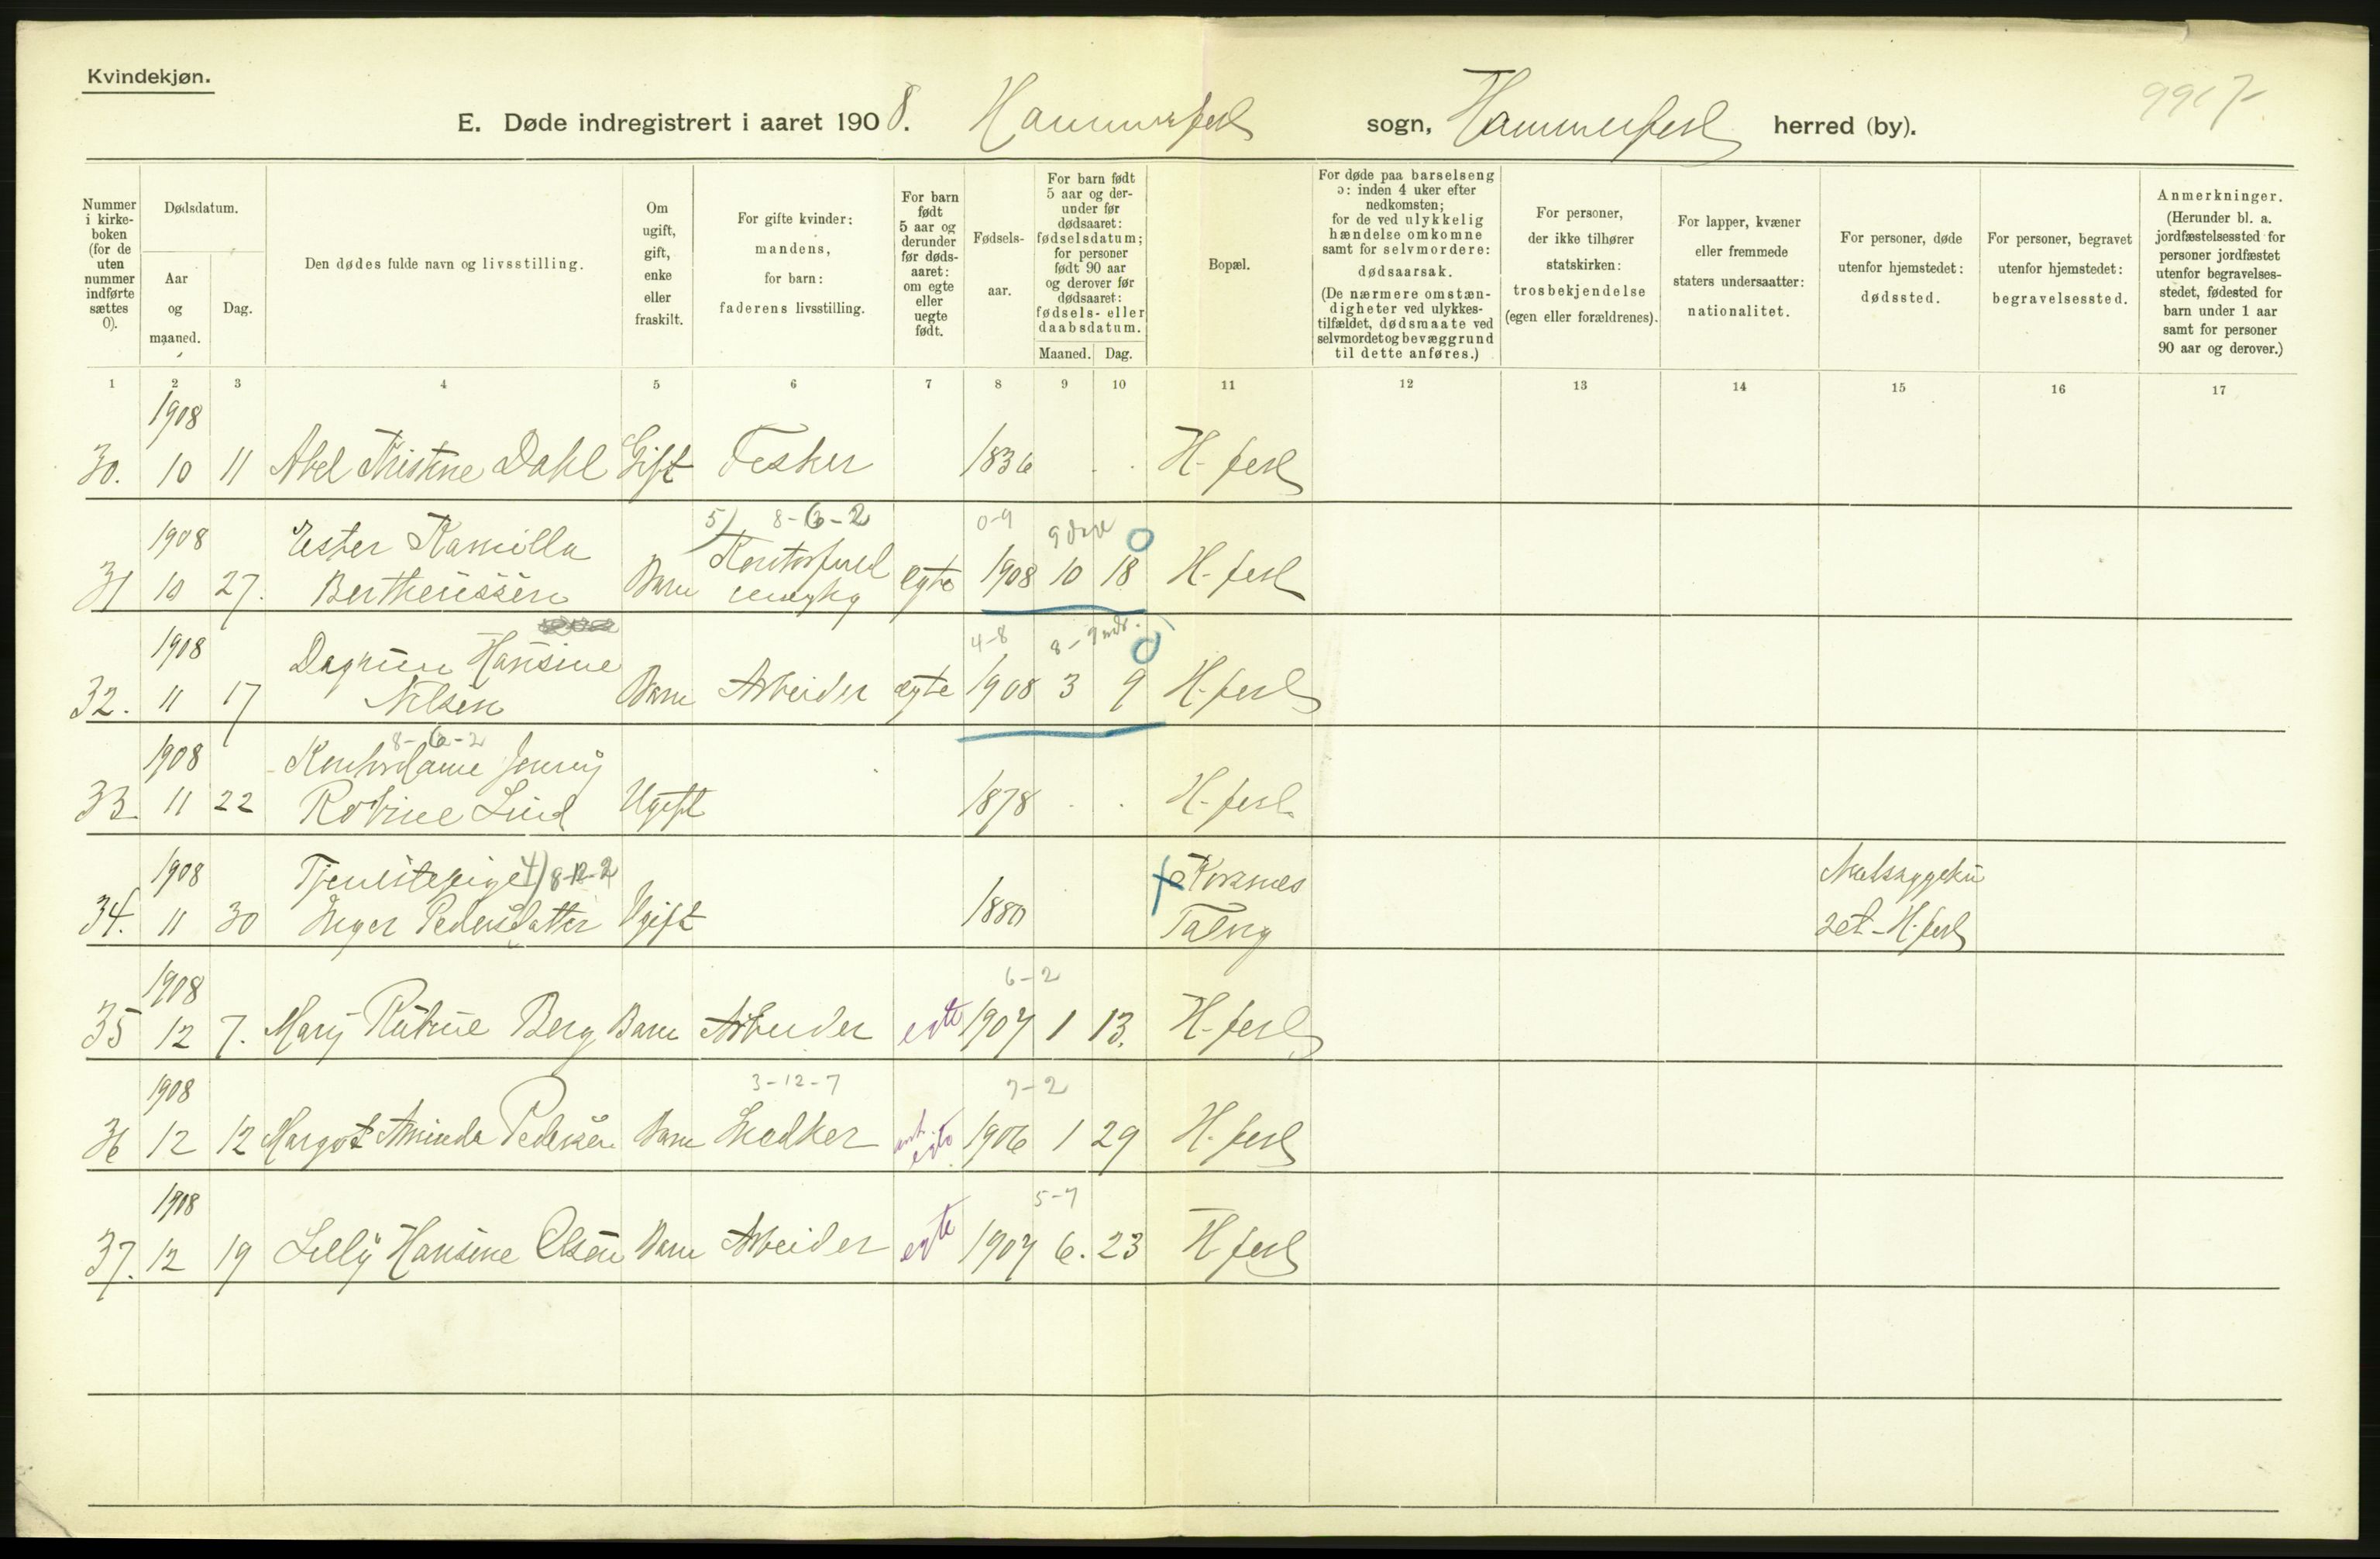 Kvindekjøn.
E. Døde indregistrert i aaret 1908. Hammerfest sogn, Hammerfest herred (by).
Nummer i kirke-boken (for de uten nummer indførte sættes 0).
Dødsdatum.
Aar og maaned.
Dag.
Den dødes fulde navn og livsstilling.
Om ugift, gift, enke eller fraskilt.
For gifte kvinder: mandens, for barn: faderens livsstilling.
For barn født 5 aar og derunder før døds-aaret: om egte eller uegte født.
Fødsels-aar.
For barn født 5 aar og der-under før dødsaaret: fødselsdatum; for personer født 90 aar og derover før dødsaaret: fødsels- eller daabsdatum.
Maaned. Dag.
Bopæl.
For døde paa barselseng ɔ: inden 4 uker efter nedkomsten; for de ved ulykkelig hændelse omkomne samt for selvmordere: dødsaarsak. (De nærmere omstæn-digheter ved ulykkes-tilfældet, dødsmaate ved selvmordet og bevæggrund til dette anføres.)
For personer, der ikke tilhører statskirken: trosbekjendelse (egen eller forældrenes).
For lapper, kvæner eller fremmede staters undersaatter: nationalitet.
For personer, døde utenfor hjemstedet: dødssted.
For personer, begravet utenfor hjemstedet: begravelsessted.
Anmerkninger. (Herunder bl. a. jordfæstelsessted for personer jordfæstet utenfor begravelses-stedet, fødested for barn under 1 aar samt for personer 90 aar og derover.)
1 2 3 4 5 6 7 8 9 10 11 12 13 14 15 16 17
1908
30. 10 11 Abel Kristine Dahl Gift Fisker 1836 H-fest
5) 8-6-2 0-9 9 dage
1908 Ester Kamilla
31 10 27. Bertheussen Barn egte 1908 10 18 H-fest
4-8 8-9 mdr.
1908 Hansine
32. 11 17 Nilsen Barn Arbeider egte 1908 3 9 H-fest
8-6-2
1908 Kontordame Jenny
33. 11 22 Lind Ugift 1878 H-fest
1908 Tjenestepige 4) 8-12-2 Korsnes
34. 11 30 Inger Pedersdatter Ugift 1880 Talvig H-fest
1908 6-2
35 12 7. Mary Berg Barn Arbeider egte 1907 1 13. H-fest
1908 3-12-7 7-2
36 12 12 Margot Aminda Pedersen Barn Snedker egte 1906 1 29 H-fest
1908 5-7
37. 12 19 Lilly Hansine Olsen Barn Arbeider egte 1907 6. 23 H-fest